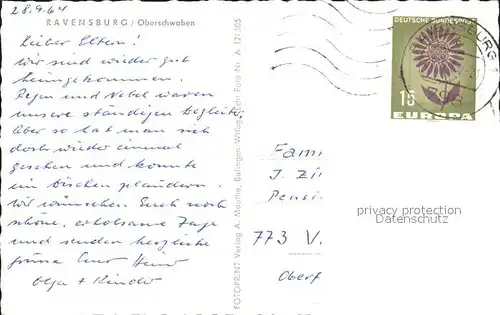 28.9.64
RAVENSBURG / Oberschwaben
Lieber Eltern!
Wir sind wieder gut
heimgekommen.
Regen und Nebel waren
unsere ständigen Begleiter,
Aber so hat man sich
doch wieder einmal
gesehen und konnte
ein bischen plaudern.
Wir wünschen Euch noch
schöne, erholsame Tage
und senden herzliche
Grüsse Euer Heinz
Olga + Kinder
FOTOPRINT Verlag A. Mauthe, Balingen Württ. Foto Nr. A 121/505
DEUTSCHE BUNDESPOST
15
EUROPA
798
Fami
J. Zi
Pensi
773 V
Oberf
privacy protection
Datenschutz